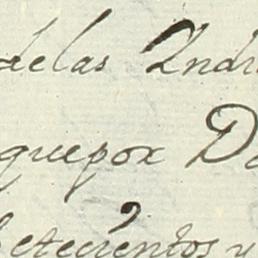 delas Yndi
quepox D
setecientos y